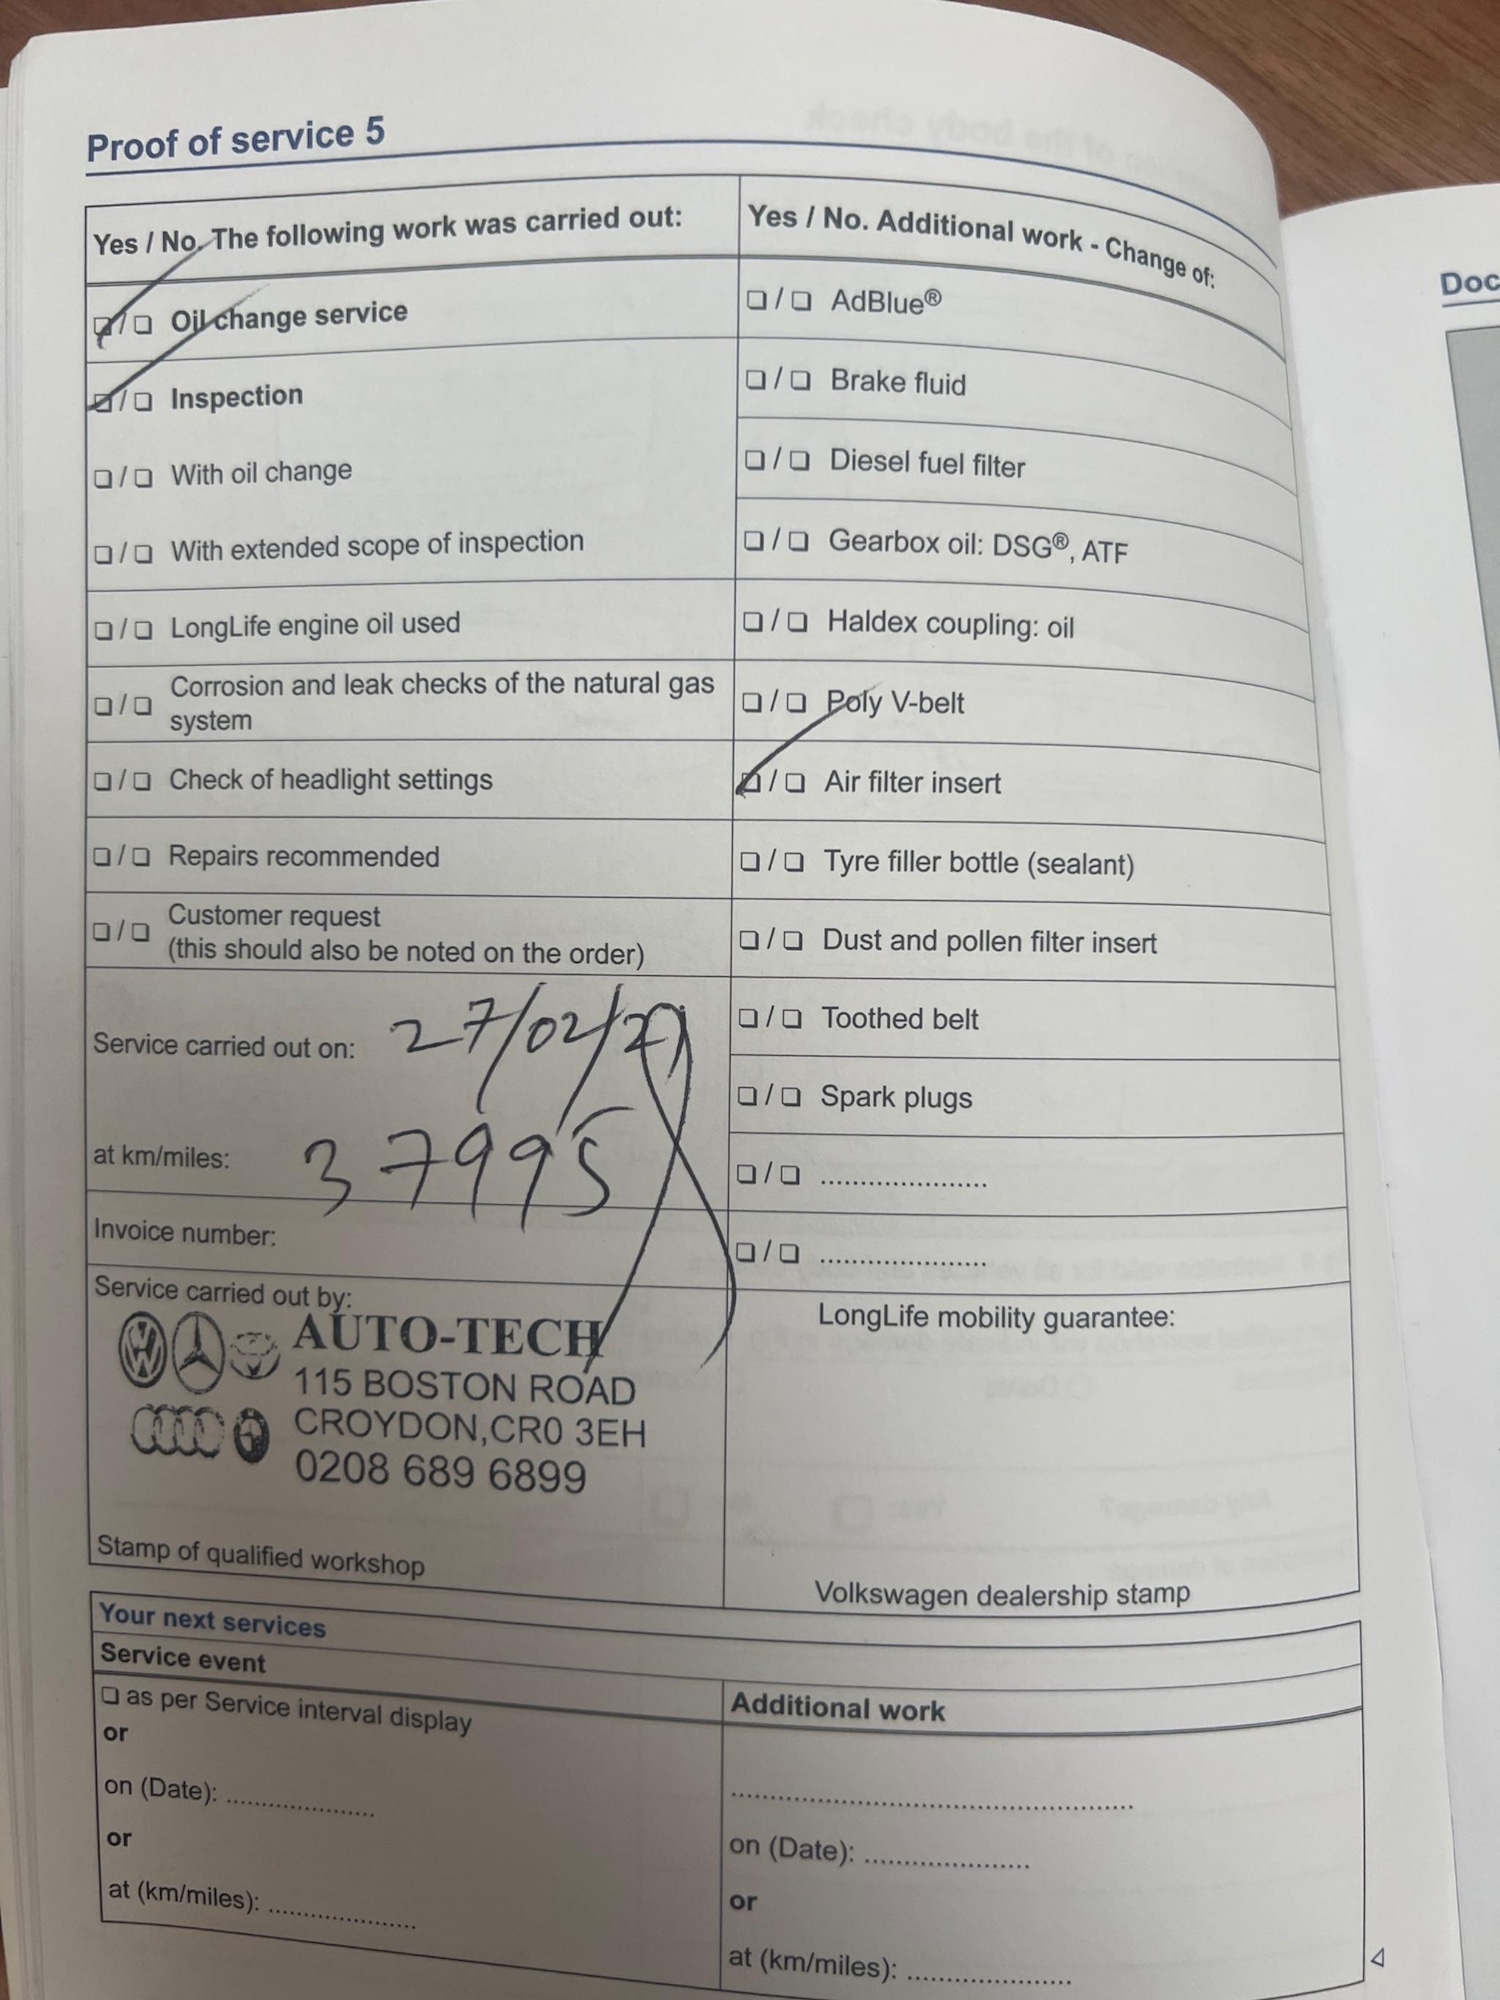 Proof of service 5
Yes / No. The following work was carried out:
☑/☐ Oil change service
☑/☐ Inspection
☐/☐ With oil change
☐/☐ With extended scope of inspection
☐/☐ LongLife engine oil used
☐/☐ Corrosion and leak checks of the natural gas
system
☐/☐ Check of headlight settings
☐/☐ Repairs recommended
☐/☐ Customer request
(this should also be noted on the order)
Service carried out on: 27/02/21
at km/miles: 37995
Invoice number:
Service carried out by:
AUTO-TECH
115 BOSTON ROAD
CROYDON,CR0 3EH
0208 689 6899
Stamp of qualified workshop
Yes / No. Additional work - Change of:
☐/☐ AdBlue®
☐/☐ Brake fluid
☐/☐ Diesel fuel filter
☐/☐ Gearbox oil: DSG®, ATF
☐/☐ Haldex coupling: oil
☐/☐ Poly V-belt
☑/☐ Air filter insert
☐/☐ Tyre filler bottle (sealant)
☐/☐ Dust and pollen filter insert
☐/☐ Toothed belt
☐/☐ Spark plugs
☐/☐ .....................
☐/☐ .....................
LongLife mobility guarantee:
Volkswagen dealership stamp
Your next services
Service event
☐ as per Service interval display
or
on (Date): ...................
or
at (km/miles): ...................
Additional work
..................................................
on (Date): .....................
or
at (km/miles): .....................
Doc